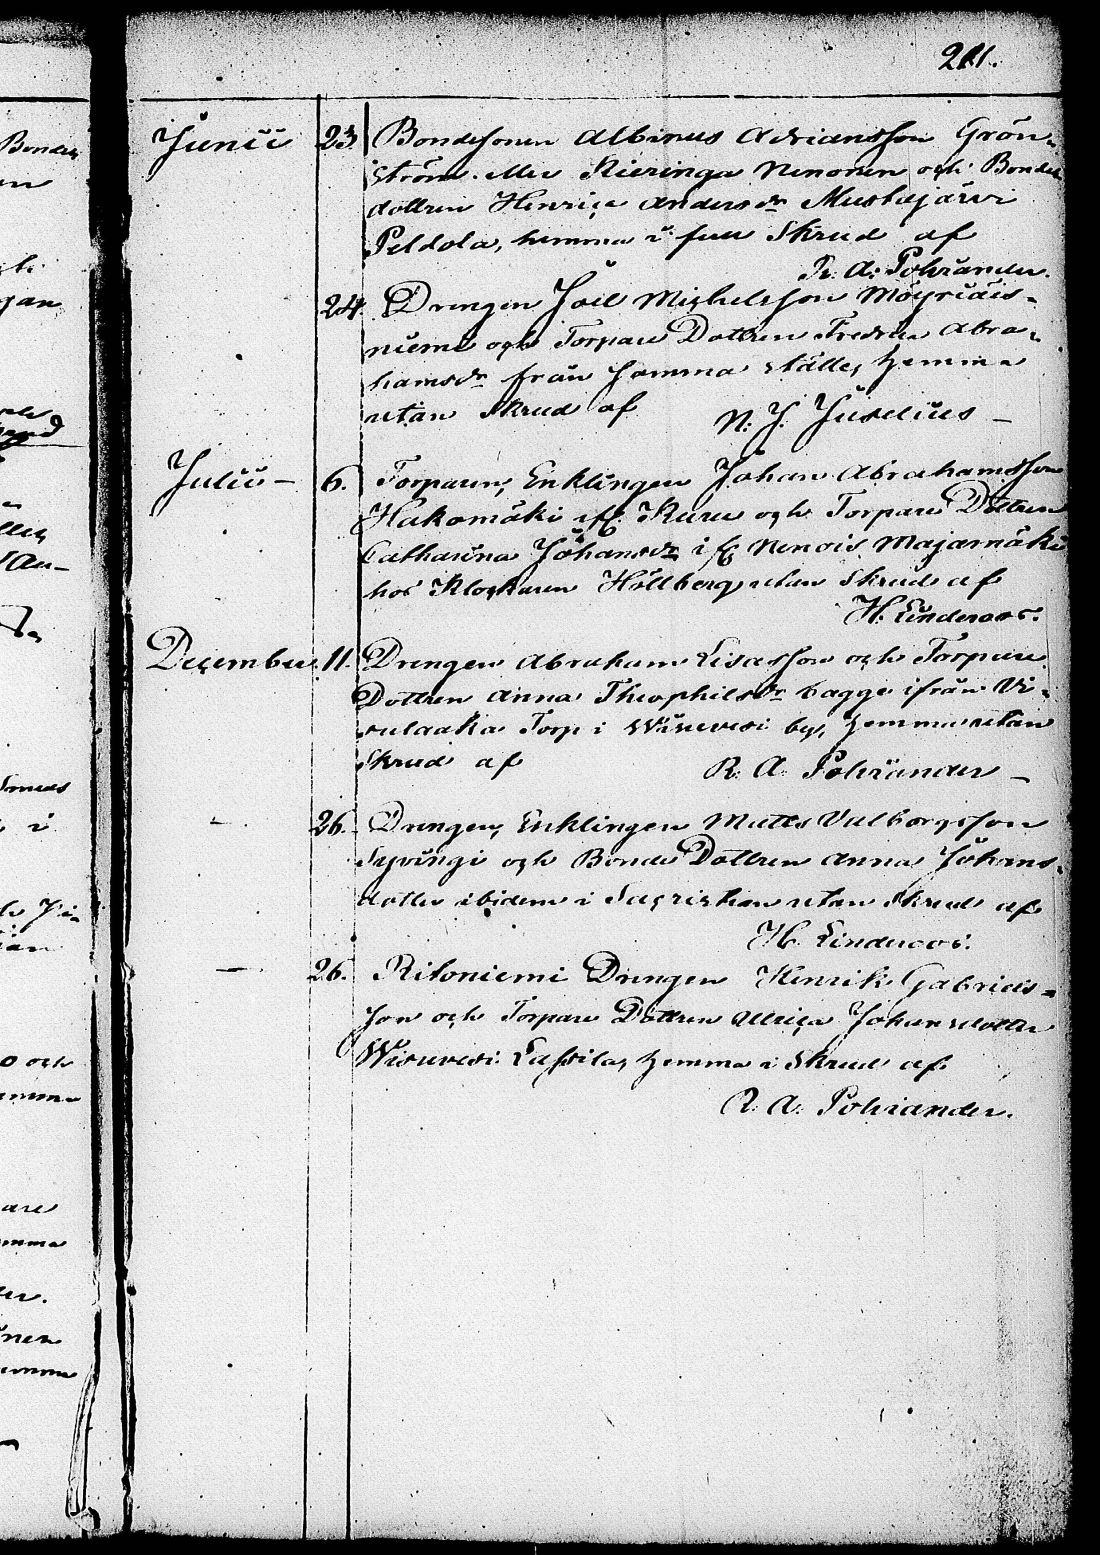 211.
Junii 23. Bondesonen Albinus Adriansson Grön-
ström eller Kieringa Nenonen och Bonde
dottren Henrica Andersdr Mustajärvi
Peldola, hemma i full Skrud af
R. A. Polviander.
24. Drengen Joel Michelsson
niemi och Torpare Dottren Fredrica Abra-
hamsdr från samma ställe, hemma
utan Skrud af N. J. Juselius
Julii 6. Torparen, Enklingen Johan Abrahamsson
Hakomäki ifr. Kuru och Torpare Dottren
Catharina Johansdr ifr Nenois Majamäki
hos Klockaren Hällberg utan Skrud af
H. Linderoos.
December 11. Drengen Abraham Lisasson och Torpare
Dottren Anna Theophilsdr Bagge ifrån Vi-
sulaaka Torp i Wisuvesi by, hemma utan
Skrud af R. A. Polviander
26. Drengen, Enklingen Matts Valborgsson
och Bonde Dottren Anna Johans-
dotter ibidem i Sacristian utan Skrud af
H. Linderoos.
26. Ritoniemi Drengen Henrik Gabriels-
son och Torpare Dottren Ulrica Johansdotter
Wisuvesi Lassila, hemma i Skrud af
R. A. Polviander.